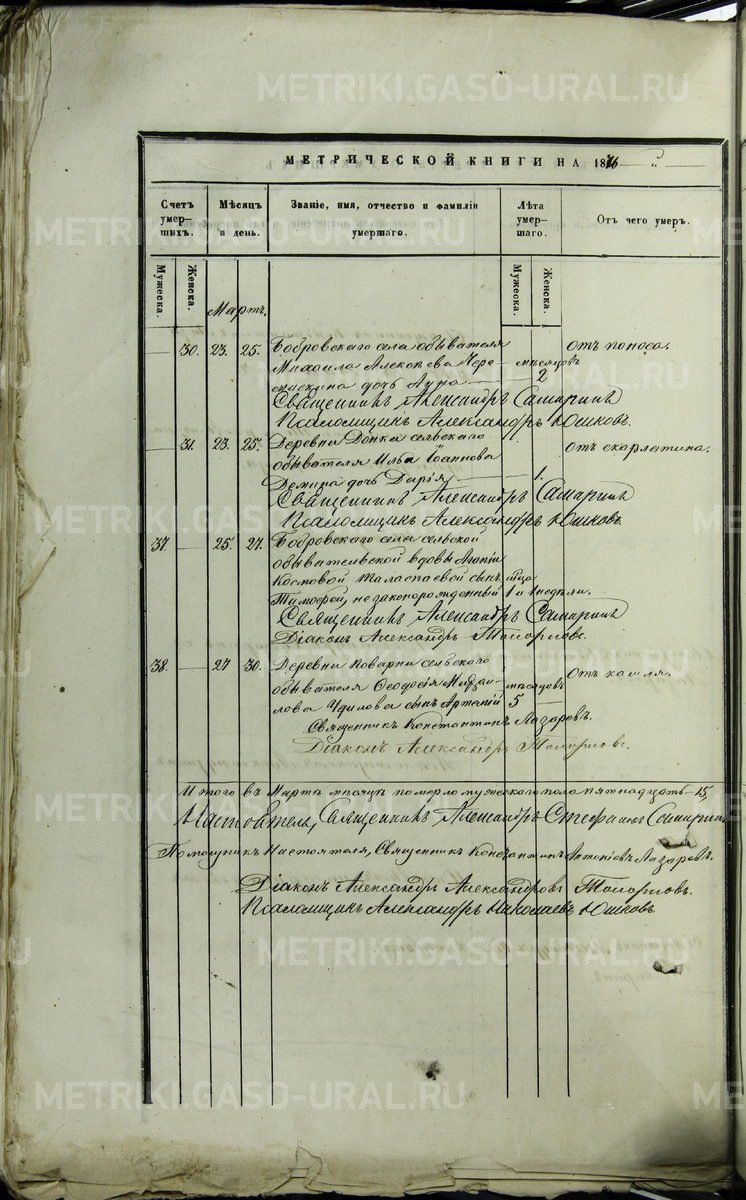 METRIKI.GASO-URAL.RU
МЕТРИЧЕСКОЙ КНИГИ НА 1876
Счетъ умер-шихъ. Мѣсяцъ и день. Званіе, имя, отчество и фамилія умершаго. Лѣта умер-шаго. Отъ чего умеръ.
Мужеска. Женска. Мужеска. Женска.
Мартъ.
30. 23. 25. Бобровскаго села обывателя Отъ поноса.
Михаила Алексѣева Чере- мѣсяцовъ
дочь Анна 2
Священникъ Александръ Самаринъ
Псаломщикъ Александръ Юшковъ.
31. 23. 25. Деревни сельскаго Отъ скарлатина.
обывателя Ильи Іоаннова
Демина дочь Дарія 1.
Священникъ Александръ Самаринъ
Псаломщикъ Александръ Юшковъ.
37. 25. 27. Бобровскаго села сельской
обывательской вдовы
Космовой сынъ мѣсяца
Тимоѳей, незаконорожденный 1 и недѣли.
Священникъ Александръ Самаринъ
Діаконъ Александръ
38. 27 30. Деревни Поварни сельскаго Отъ кашля.
обывателя Ѳеодосія Михаи- мѣсяцовъ
лова сынъ Артемій 5
Священникъ Константинъ Лазаревъ.
Діаконъ Александръ
Итого въ Мартѣ мѣсяцѣ померло мужескаго пола пятнадцать 15,
Настоятель, Священникъ Александръ Стефановъ Самаринъ
Помощникъ Настоятеля, Священникъ Константинъ Антоніевъ Лазаревъ.
Діаконъ Александръ Александровъ
Псаломщикъ Александръ Николаевъ Юшковъ.